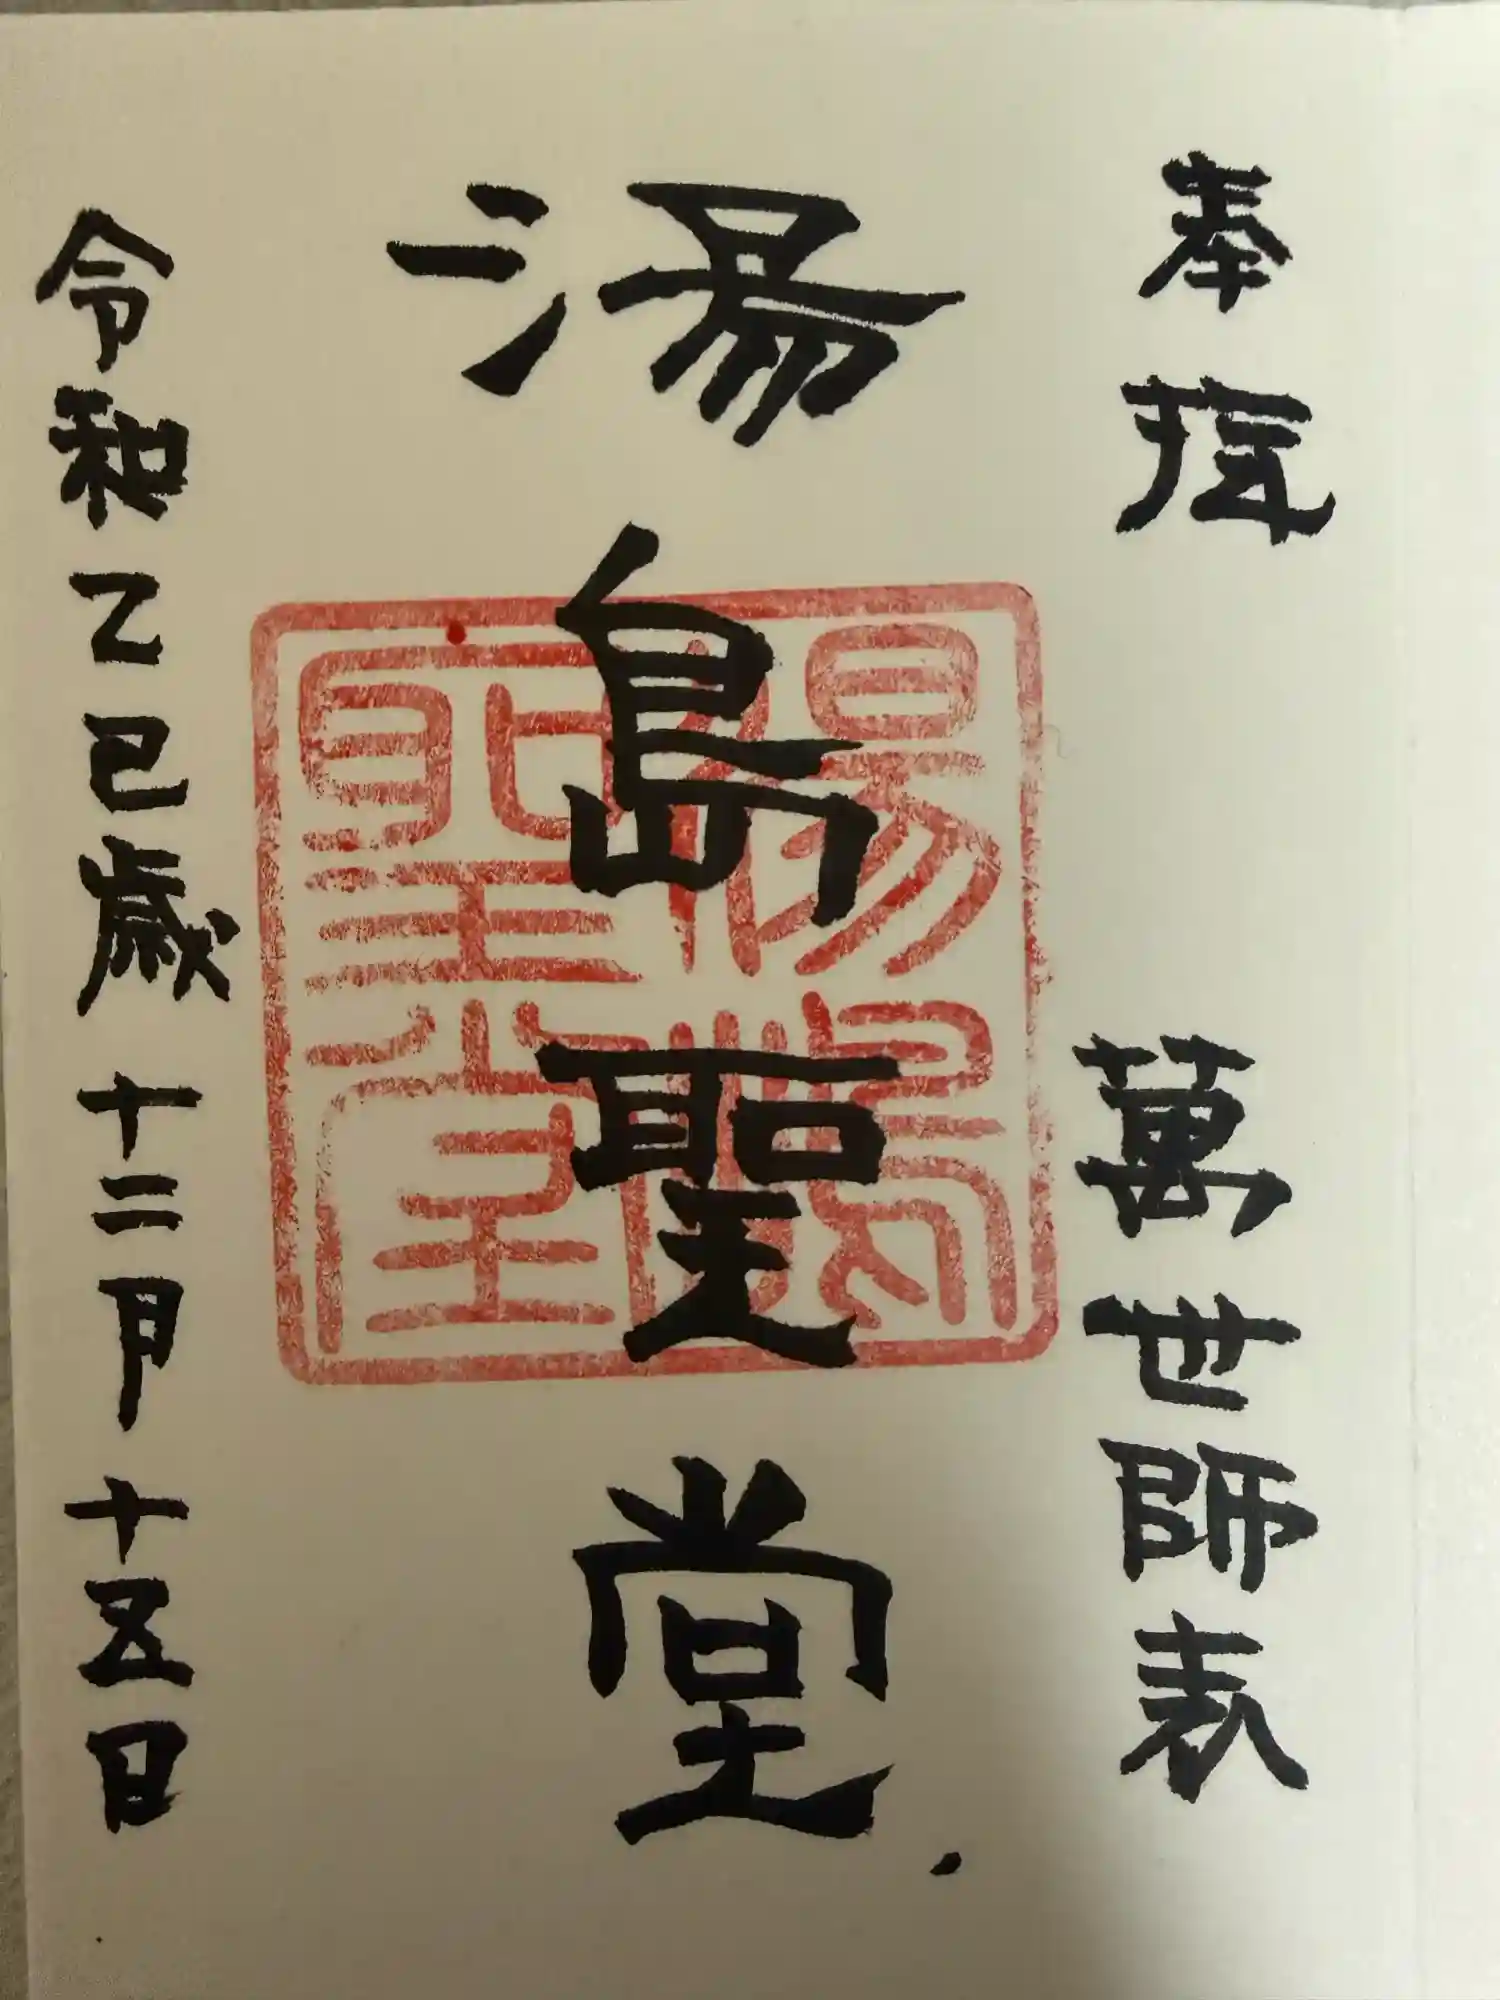 奉拝　萬世師表
湯島聖堂
湯島聖堂
令和乙巳歳十二月十五日